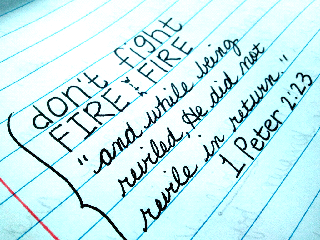 don't fight
FIRE with FIRE
"and while being
reviled, He did not
revile in return."
1 Peter 2:23